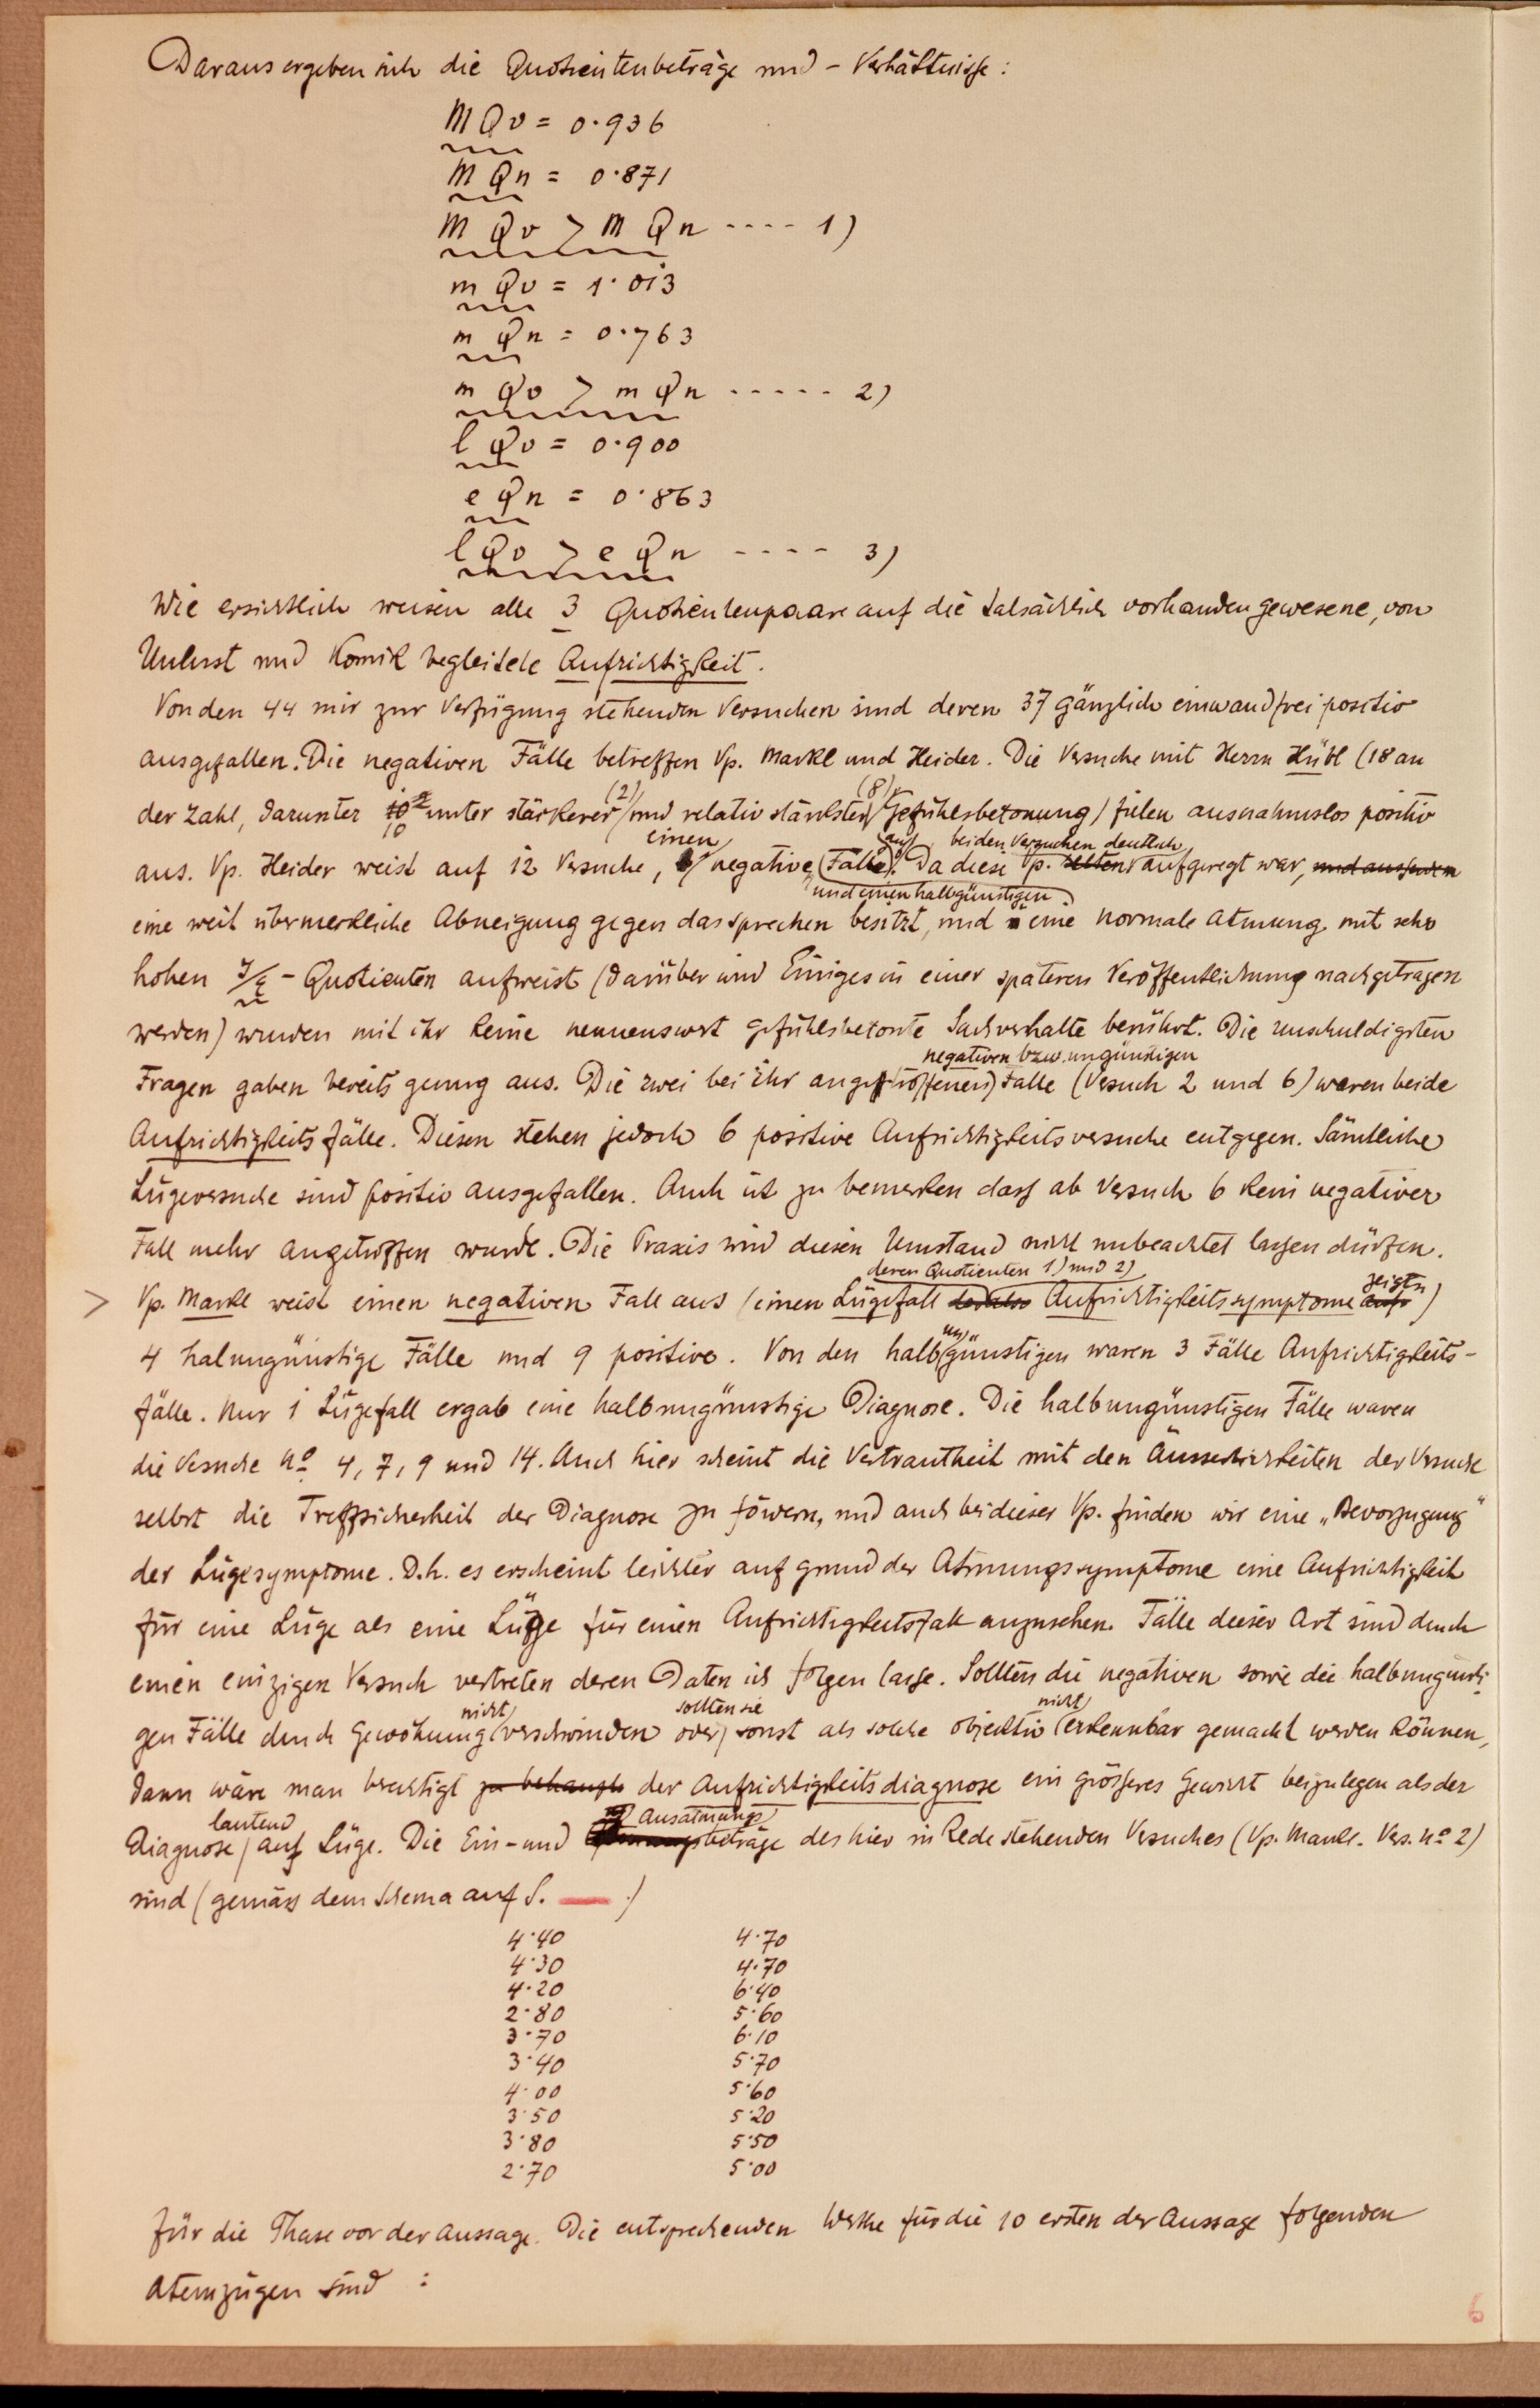 Daraus ergeben sich die Quotientenbeträge und - Verhältnisse:
M Qv = 0·936
M Qn = 0·871
M Qv > M Qn ---- 1)
m Qv = 1·013
m Qn = 0·763
m Qv > m Qn ----- 2)
l Qv = 0·900
e Qn = 0·863
l Qv > e Qn ---- 3)
Wie ersichtlich weisen alle 3 Quotientenpaare auf die tatsächlich vorhanden gewesene, von
Unlust und Komik begleitete Aufrichtigkeit.
Von den 44 mir zur Verfügung stehenden Versuchen sind deren 37 gänzlich einwandfrei positiv
ausgefallen. Die negativen Fälle betreffen Vp. Markl und Heider. Die Versuche mit Herrn Hübl (18 an
(2) (8)
der Zahl, darunter 10 unter stärkerer und relativ stärkster Gefühlsbetonung) fielen ausnahmslos positiv
einen auf beiden Versuchen deutlich
aus. Vp. Heider weist auf 12 Versuche, negative Fälle. Da diese Vp. selten aufgeregt war, und ausserdem
und einen halbgünstigen
eine weit übermerkliche Abneigung gegen das Sprechen besitzt, und eine normale Atmung mit sehr
hohen J/E - Quotienten aufweist (darüber wird Einiges in einer späteren Veröffentlichung nachgetragen
werden) wurden mit ihr keine nennenswert gefühlsbetonte Sachverhalte berührt. Die unschuldigsten
negativen bzw. ungünstigen
Fragen gaben bereits genug aus. Die zwei bei ihr angetroffenen Fälle (Versuch 2 und 6) waren beide
Aufrichtigkeitsfälle. Diesen stehen jedoch 6 positive Aufrichtigkeitsversuche entgegen. Sämtliche
Lügeversuche sind positiv ausgefallen. Auch ist zu bemerken dass ab Versuch 6 kein negativer
Fall mehr angetroffen wurde. Die Praxis wird diesen Umstand nicht unbeachtet lassen dürfen.
deren Quotienten 1) und 2) zeigten
> Vp. Markl weist einen negativen Fall aus (einen Lügefall Aufrichtigkeitssymptome)
un
4 halungünstige Fälle und 9 positive. Von den halbgünstigen waren 3 Fälle Aufrichtigkeits-
fälle. Nur 1 Lügefall ergab eine halbungünstige Diagnose. Die halbungünstigen Fälle waren
die Versuche No 4, 7, 9 und 14. Auch hier scheint die Vertrautheit mit den Äusserlichkeiten der Versuche
selbst die Treffsicherheit der Diagnose zu fördern, und auch bei dieser Vp. finden wir eine „Bevorzugung"
der Lügesymptome. D.h. es erscheint leichter auf grund der Atmungssymptome eine Aufrichtigkeit
für eine Lüge als eine Lüge für einen Aufrichtigkeitsfall anzusehen. Fälle dieser Art sind durch
einen einzigen Versuch vertreten deren Daten ich folgen lasse. Sollten die negativen sowie die halbungünsti-
nicht sollten sie nicht
gen Fälle durch Gewöhnung verschwinden oder sonst als solche objektiv erkennbar gemacht werden können,
dann wäre man berechtigt zu behaupte der Aufrichtigkeitsdiagnose ein grösseres Gewicht beizulegen als der
lautend Ausatmungs
Diagnose auf Lüge. Die Ein- und beträge des hier in Rede stehenden Versuches (Vp. Markl. Vers. No 2)
sind (gemäss dem Schema auf S. .)
4·40 4·70
4·30 4·70
4·20 6·40
2·80 5·60
3·70 6·10
3·40 5·70
4·00 5·60
3·50 5·20
3·80 5·50
2·70 5·00
für die Phase vor der Aussage. Die entsprechenden Werthe für die 10 ersten der Aussage folgenden
Atemzügen sind :
6